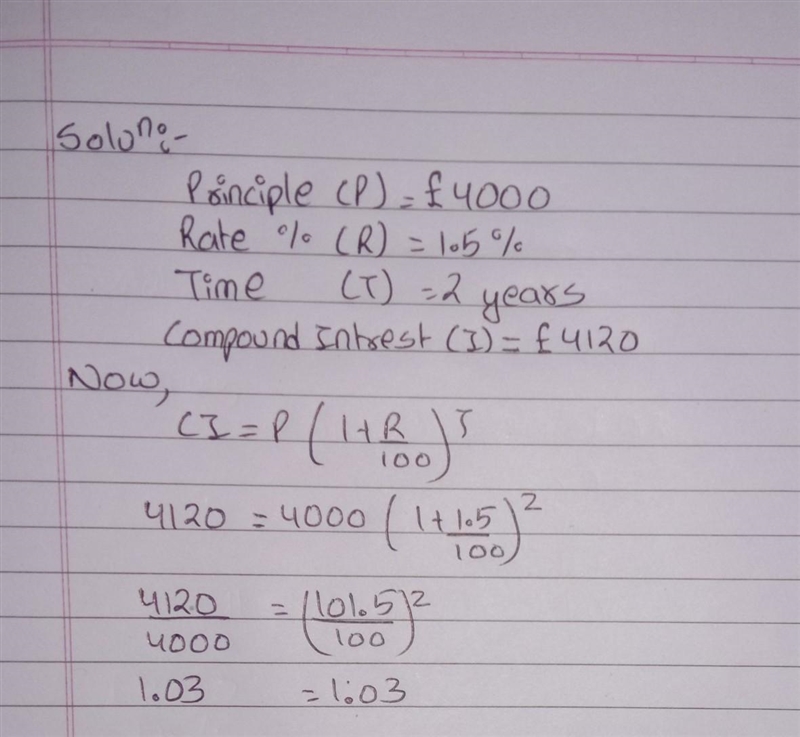 Soluⁿ:-
Principle (P) = £4000
Rate % (R) = 1.5%
Time (T) = 2 years
Compound Intrest (I) = £4120
Now,
CI = P (1+R/100)^T
4120 = 4000 (1+1.5/100)^2
4120/4000 = (101.5/100)^2
1.03 = 1.03